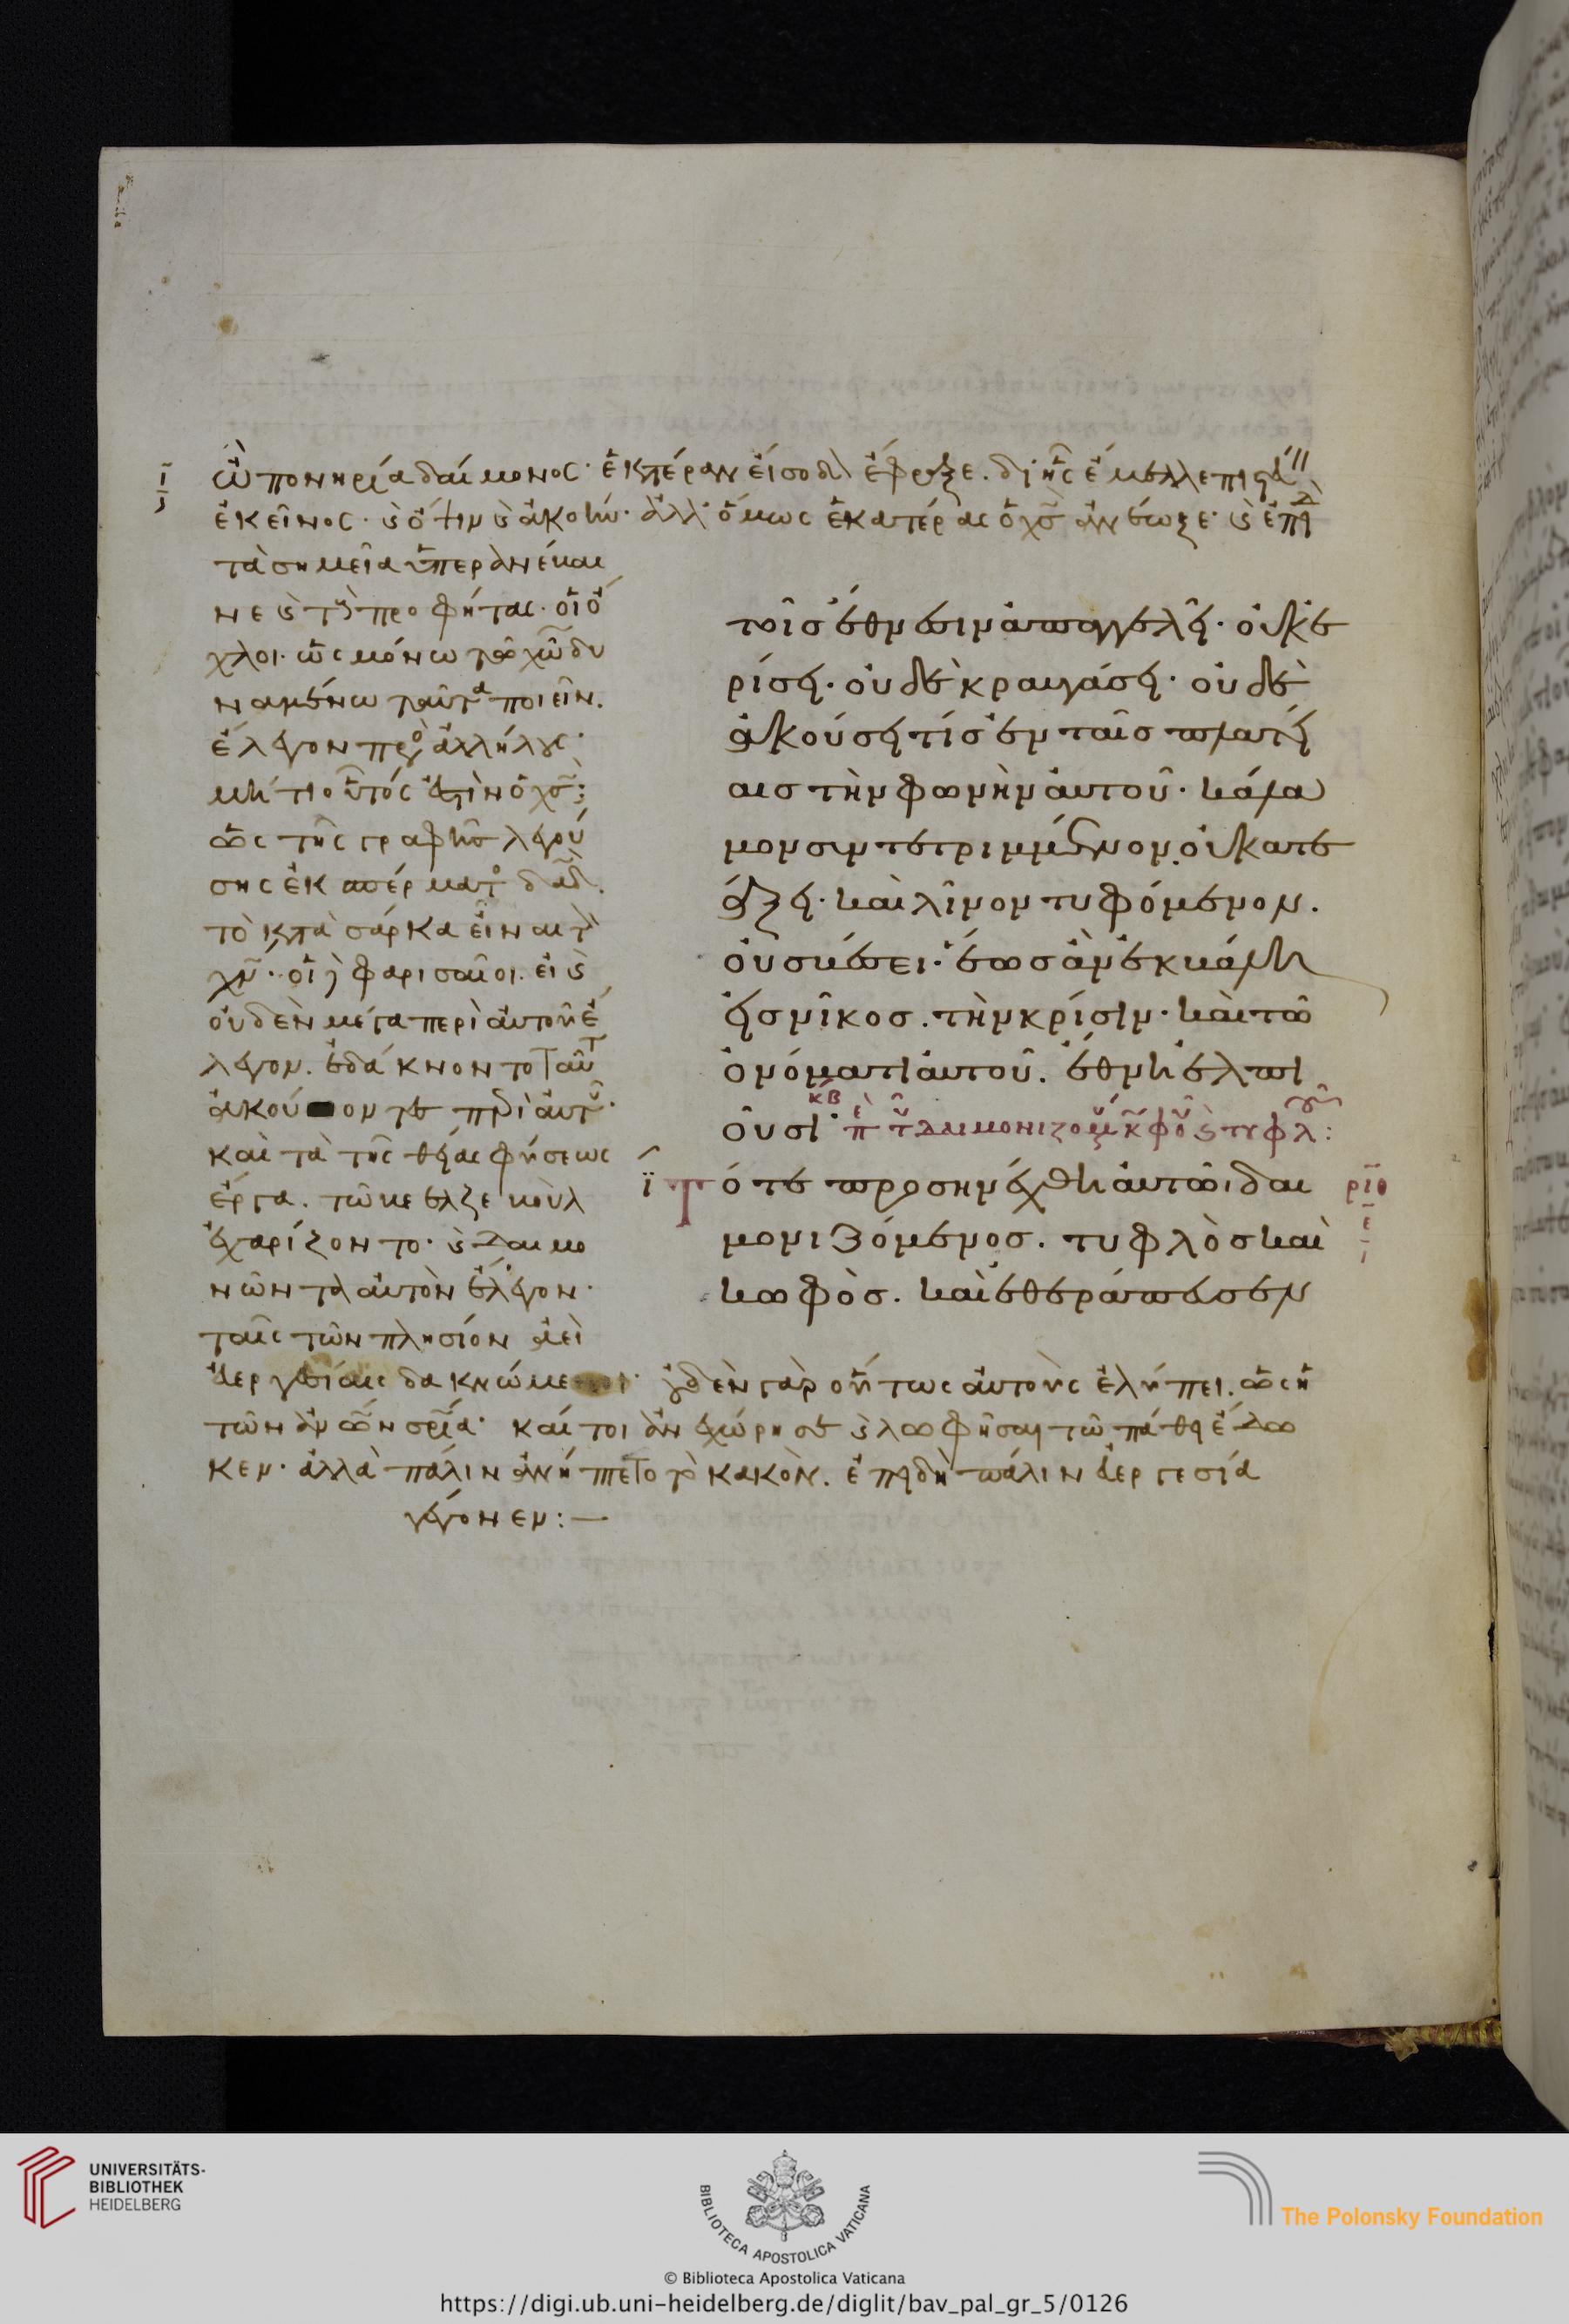 ὢ πονηρία δαίμονος· ἑκατέραν εἴσοδον ἔφραξε. δι' ἧς ἔμελλε πιστεύειν
ἐκεῖνος· καὶ ὄψιν καὶ ἀκοήν· ἀλλ' ὅμως ἑκατέρας ὁ χσ ἀνέωξε· καὶ ἐπειδὴ
τὰ σημεῖα ὑπερ
νε καὶ τοὺς προφήτας· οἱ ὄ
χλοι· ὡς μόνω τῶ χῶ δυ
ναμένω ταῦτα ποιεῖν.
ἔλεγον πρὸς ἀλλήλους·
μήτι οὗτός ἐστὶν ὁ χσ;
ὡς τῆς γραφῆς λεγού
σης ἐκ σπέρματος δαδ.
τὸ κατὰ σάρκα εἶναι τὸν
χν· οἱ δὲ φαρισαῖοι. εἰ καὶ
οὐδὲν μέγα περὶ αὐτοῦ ἔ
λεγον. ἐδάκνοντο ταῦτ
ἀκούοντες περὶ αὐτοῦ·
καὶ τὰ τῆς θείας φύσεως
ἔργα. τῶ βεελζεβοὺλ
ἐχαρίζοντο· καὶ δαιμο
νῶντα αὐτὸν ἔλεγον·
ταῖς τῶν πλησίον ἀεὶ
εὐεργεσίαις δακνώμενοι· οὐδὲν γὰρ οὕτως αὐτοὺς ἐλύπει. ὡς ἡ
τῶν ἀνων σρία· καί τοι ἀνεχώρησε καὶ λωφῆσαι τῶ πάθει ἔδω
κεν· ἀλλὰ πάλιν ἀνήπτετο τὸ κακὸν. ἐπειδὴ πάλιν εὐεργεσία
γέγονεν:—
τοῖς ἔθνεσιν ἀπαγγελεῖ· οὐκ ἐ
ρίσει· οὐδὲ κραυγάσει· οὐδὲ
ἀκούσει τίς ἐν ταῖς πλατεί
αις τὴν φωνὴν αὐτοῦ· κάλα
μον συντετριμμένον οὐ κατε
άξει· καὶ λῖνον τυφόμενον.
οὐ σβέσει· ἕως ἂν ἐκβάλη
εἰς νῖκος. τὴν κρίσιν· καὶ τῶ
ὀνόματι αὐτοῦ. ἔθνη ἐλπι
οῦσι· κβ περὶ τοῦ δαιμονιζομένου κωφοῦ καὶ τυφλοῦ:
Τότε προσηνέχθη αὐτῶ· δαι ριθ
μονιζόμενος. τυφλὸς καὶ
κωφὸς. καὶ ἐθεράπευσεν
UNIVERSITÄTS-
BIBLIOTHEK
HEIDELBERG
BIBLIOTECA APOSTOLICA VATICANA
The Polonsky Foundation
© Biblioteca Apostolica Vaticana
https://digi.ub.uni-heidelberg.de/diglit/bav_pal_gr_5/0126